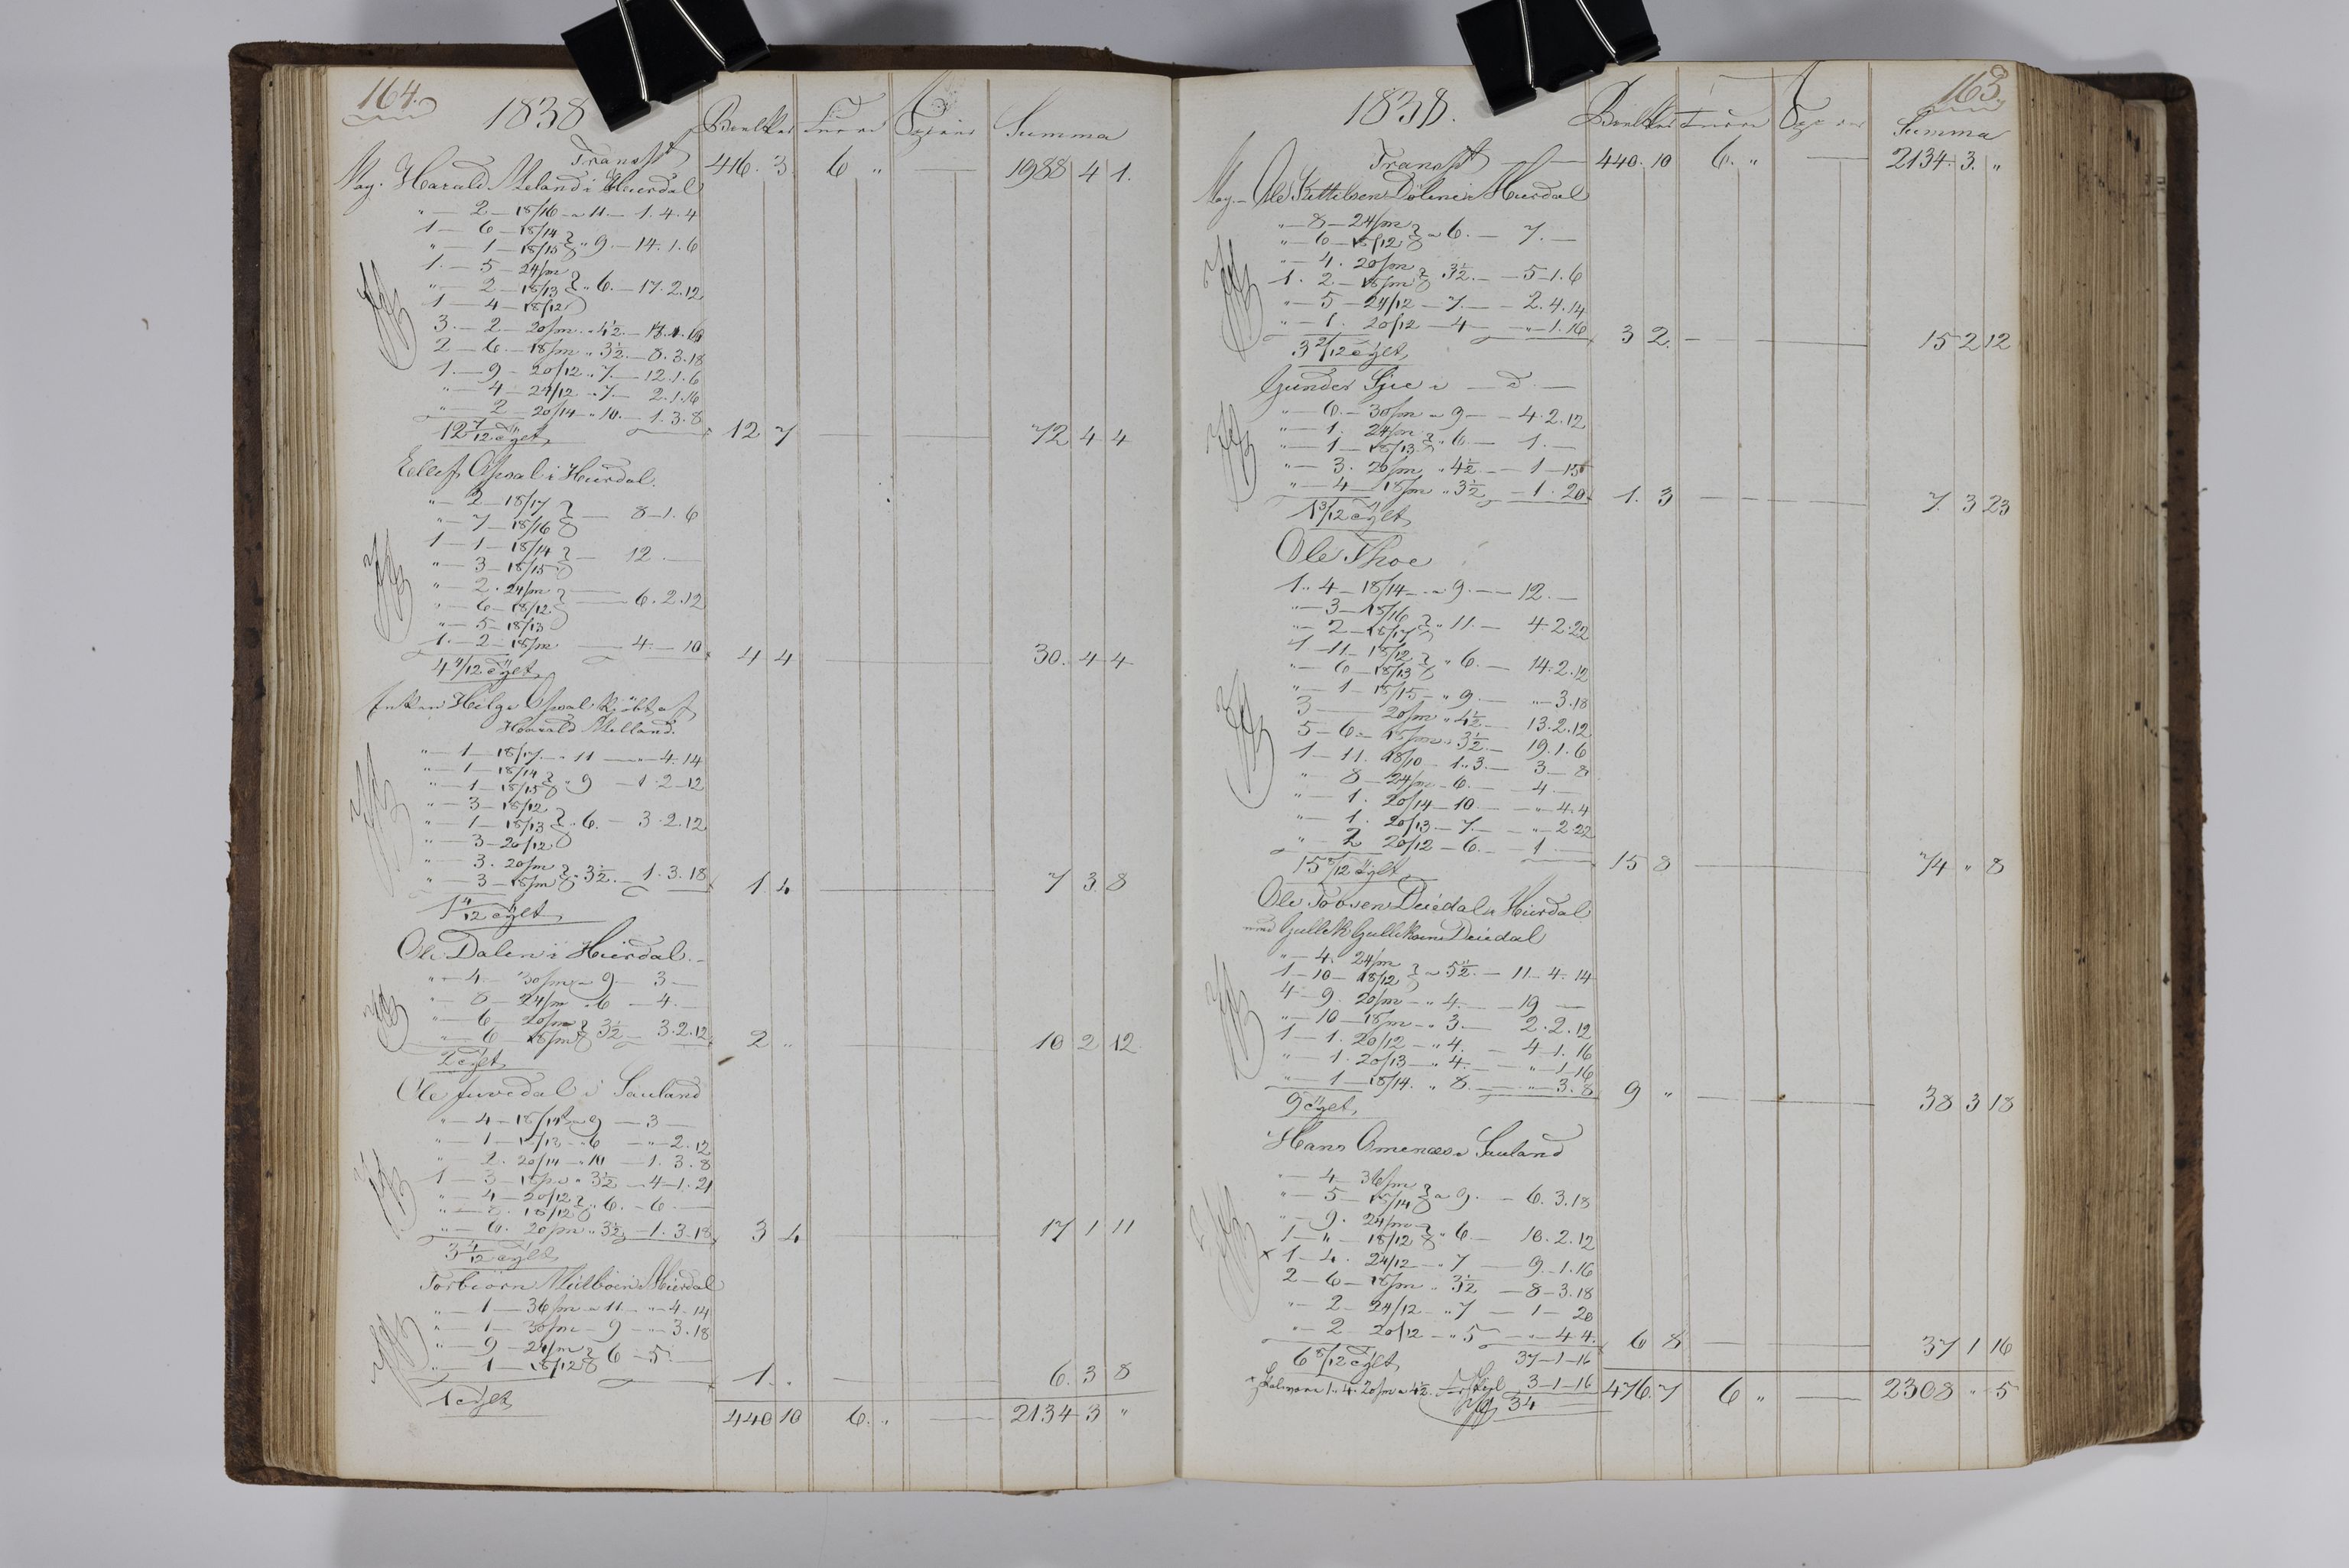 164.
1838
Summa
Transpt 416. 3. 6 " — 1988 4 1.
May. Harald Meland i Hierdal
" — 2 — 18/16 — a 11 — 1. 4. 4
1 — 6 — 18/14
" — 1 — 18/15 " 9. — 14. 1. 6
1. — 5 — 24/m
" — 2 — 18/13 " 6. — 17. 2. 12
1 — 4 — 18/12
3. — 2 — 20/m " 4½ —
2 — 6. — 18/m " 3½ — 8. 3. 18
1. — 9 — 20/12 " 7. — 12. 1. 6
" — 4 — 24/12 " 7 — 2. 1. 16
" — 2 — 20/14 " 10. — 1. 3. 8
12 7/12 tylt 12 7 — 72 4 4
i Hierdal.
" — 2 — 18/17
" — 7 — 18/16 — 8 — 1. 6
1 — 1 — 18/14
" — 3 — 18/15 — 12. —
" — 2. 24/m
" — 6 — 18/12 — 6. 2. 12
" — 5 — 18/13
1. — 2 — 18/m — 4. — 10
4 4/12 tylt 4 4 — 30. 4 4
Enken Helge Kiöbt af
Haarald Melland.
" — 1 — 18/17 — " 11 — " — 4. 14
" — 1 — 18/14
" — 1 — 18/15 " 9 — 1. 2. 12
" — 3 — 18/12
" — 1 — 18/13 " 6. — 3. 2. 12
" — 3 — 20/12
" — 3. 20/m
" — 3 — 18/m " 3½ — 1. 3. 18
1 4/12 tylt 1. 4 — 7 3 8
Ole Dalen i Hierdal. —
" — 4. 30/m a 9 — 3 —
" — 8 — 24/m " 6 — 4. —
" — 6 20/m
" — 6 18/m 3½ — 3. 2. 12
2 tylt 2 " — 10 2 12.
Ole Juvedal i Sauland
" — 4 — 18/14 a 9 — 3 —
" — 1 — 18/13 — " 6 — " — 2. 12
" — 2. 20/14 — " 10 — 1. 3. 8
1 — 3 — 18/m " 3½ — 4 — 1. 21
" — 4 — 20/12
" — 8. 18/12 " 6. — 6 —
" — 6. 20/m " 3½ — 1. 3. 18
3 4/12 tylt 3 4 — 17 1 11
Torbiörn i Hierdal
" — 1 — 36/m — a 11. — " — 4. 14
" — 1 — 30/m — 9 — " — 3. 18
" — 9 — 24/m
" — 1 — 18/12 6 — 5 —
1 tylt 1. " — 6. 3 8
440 10 6. " — 2134 3 "
163.
1838.
Summa
Transpt — 440. 10 6. " — 2134. 3. "
May. — Ole Kittilsen Dölen i Hierdal
" — 8 — 24/m
" — 6 — 18/12 a 6. — 7. —
" — 4. 20/m
1. 2 — 18/m 3½ — 5 — 1. 6
" — 5 — 24/12 — 7. — 2. 4. 14
" — 1. 20/12 — 4 — " — 1. 16
3 2/12 tylt 3 2 — 15 2 12
Gunder i — d. —
" — 6. — 30/m — a 9 — 4. 2. 12
" — 1. 24/m
" — 1 — 18/13 " 6 — 1. —
" — 3. 20/m " 4½ — 1 — 15
" — 4 — 18/m " 3½ — 1. 20
1 3/12 tylt 1. 3 — 7. 3 23
Ole Thoe
1. 4 — 18/14 — a 9. — 12. —
" — 3 — 18/16
" — 2 — 18/17 " 11. — 4. 2. 22
1 — 11 — 18/12
" — 6 — 18/13 " 6. — 14. 2. 12
" — 1 — 18/15 — " 9. — " — 3. 18
3 — 20/m " 4½ — 13. 2. 12
5 — 6 — 18/m " 3½ — 19. 1. 6
1 — 11. 18/10 — 1. 3. — 3 — 8
" 8 — 24/m — 6. — 4. —
" — 1. 20/14 — 10. — " — 4. 4
" — 1. 20/13 — 7. — " — 2. 22
" — 2 20/12 — 6. — 1. —
15 8/12 tylt 15 8 — 74 " 8
Ole Deiedal i Hierdal
med Gullik Gulliksen Deiedal
" — 4. 24/m
1 — 10 — 18/12 a 5½ — 11. 4. 14
4 — 9. 20/m — " 4. — 19 —
" — 10 — 18/m — " 3. — 2. 2. 12
1 — 1. 20/12 — " 4. — 4. 1. 16
" — 1. 20/13 — " 4. — " — 1. 16
" — 1 — 18/14. " 8. — " — 3. 8
9 tylt 9 " — 38 3 18
Hans Omenæs i Sauland
" — 4 36/m
" — 5 — 18/14 a 9. — 6. 3. 18
" — 9. 24/m
1 — " — 18/12 " 6. — 10. 2. 12
x 1 — 4. 24/12 — " 7 — 9. — 1. 16
2 — 6 — 18/m " 3½ — 8 — 3. 18
" — 2 — 24/12 — " 7 — 1 — 20
" — 2 20/12 — " 5 — " — 4 4.
6 8/12 tylt 37 — 1 — 16 6 8 — 37 1 16
1. 4. 20/m a 4½ 3 — 1 — 16 476. 7 6 " — 2308 " 5
34